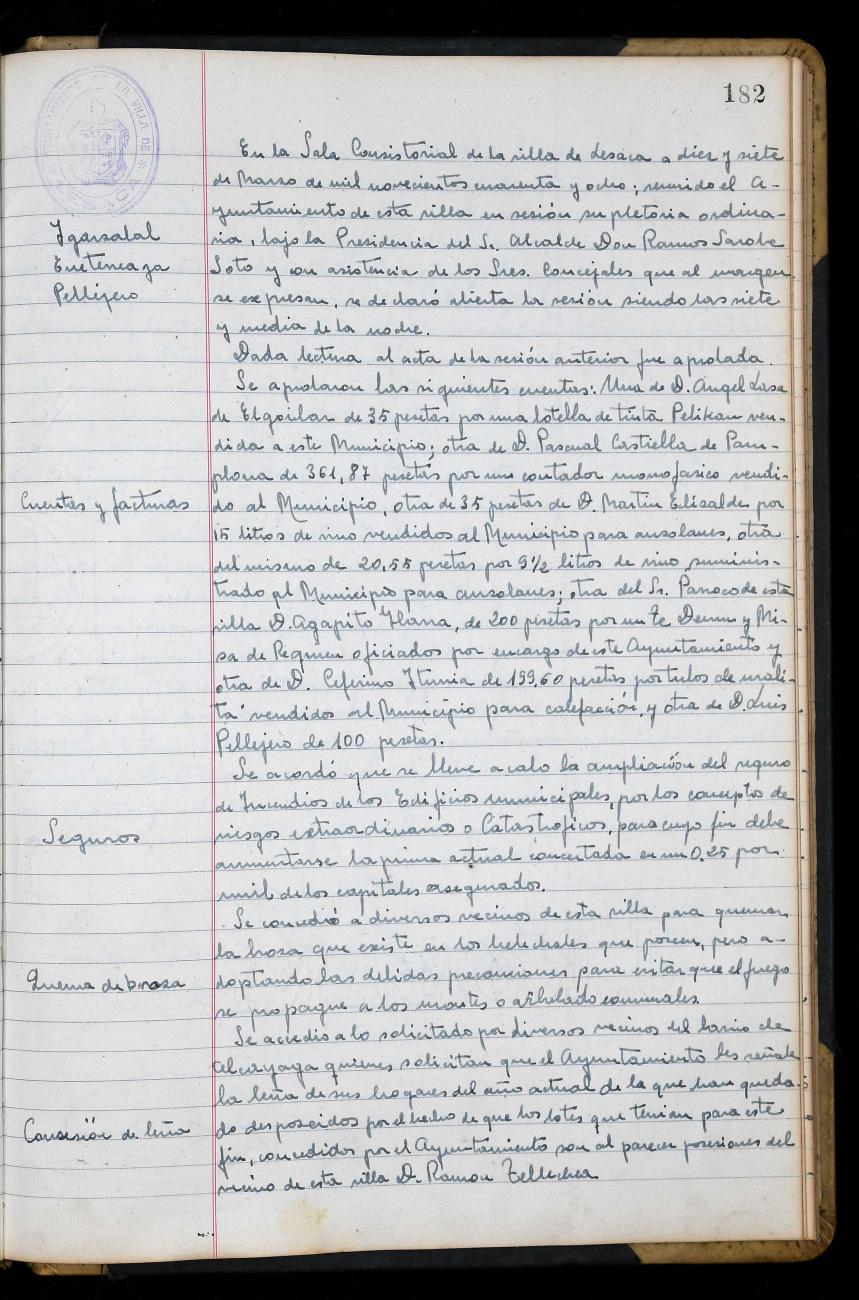 182
AYUNTAMIENTO DE LA VILLA DE
LESACA
En la Sala Consistorial de la villa de Lesaca a diez y siete
de Marzo de mil novecientos cuarenta y ocho; reunido el A-
yuntamiento de esta villa en sesión supletoria ordina-
ria, bajo la Presidencia del Sr. Alcalde Don Ramos Sarobe
Soto y con asistencia de los Sres. Concejales que al margen
se expresan, se declaró abierta la sesión siendo las siete
y media de la noche.
Igarzabal
Endeneaza
Pellejero
Dada lectura al acta de la sesión anterior fue aprobada.
Se aprobaron las siguientes cuentas: Una de D. Angel Lasa
de Elgoibar de 35 pesetas por una botella de tinta Pelikan ven-
dida a este Municipio; otra de D. Pascual Castiella de Pam-
plona de 361,87 pesetas por un contador monofasico vendi-
Cuentas y facturas
do al Municipio, otra de 35 pesetas de D. Martin Elizalde por
15 litros de vino vendidos al Municipio para auzolanes, otra
del mismo de 20,55 pesetas por 9 1/2 litros de vino suminis-
trado al Municipio para auzolanes; otra del Sr. Parroco de esta
villa D. Agapito Yllana, de 200 pesetas por un Te Deum y Mi-
sa de Requien oficiados por encargo de este Ayuntamiento y
otra de D. Ceferino Iturria de 199,60 pesetas por tubos de urali-
ta vendidos al Municipio para calefacción, y otra de D. Luis
Pellejero de 100 pesetas.
Se acordó que se lleve a cabo la ampliación del seguro
de Incendios de los Edificios municipales, por los conceptos de
Seguros
riesgos extraordinarios o Catastroficos, para cuyo fin debe
aumentarse la prima actual concertada en un 0,25 por
mil de los capitales asegurados.
Se concedió a diversos vecinos de esta villa para quemar
la broza que existe en los helechales que poseen, pero a-
Quema de broza
doptando las debidas precauciones para evitar que el fuego
se propague a los montes o arbolado comunales.
Se accedio a lo solicitado por diversos vecinos del barrio de
Alcayaga quienes solicitan que el Ayuntamiento les señale
la leña de sus hogares del año actual de la que han queda-
Concesión de leña
do desposeidos por el hecho de que los lotes que tenian para este
fin, concedidos por el Ayuntamiento son al parecer posesiones del
vecino de esta villa D. Ramon Tellechea